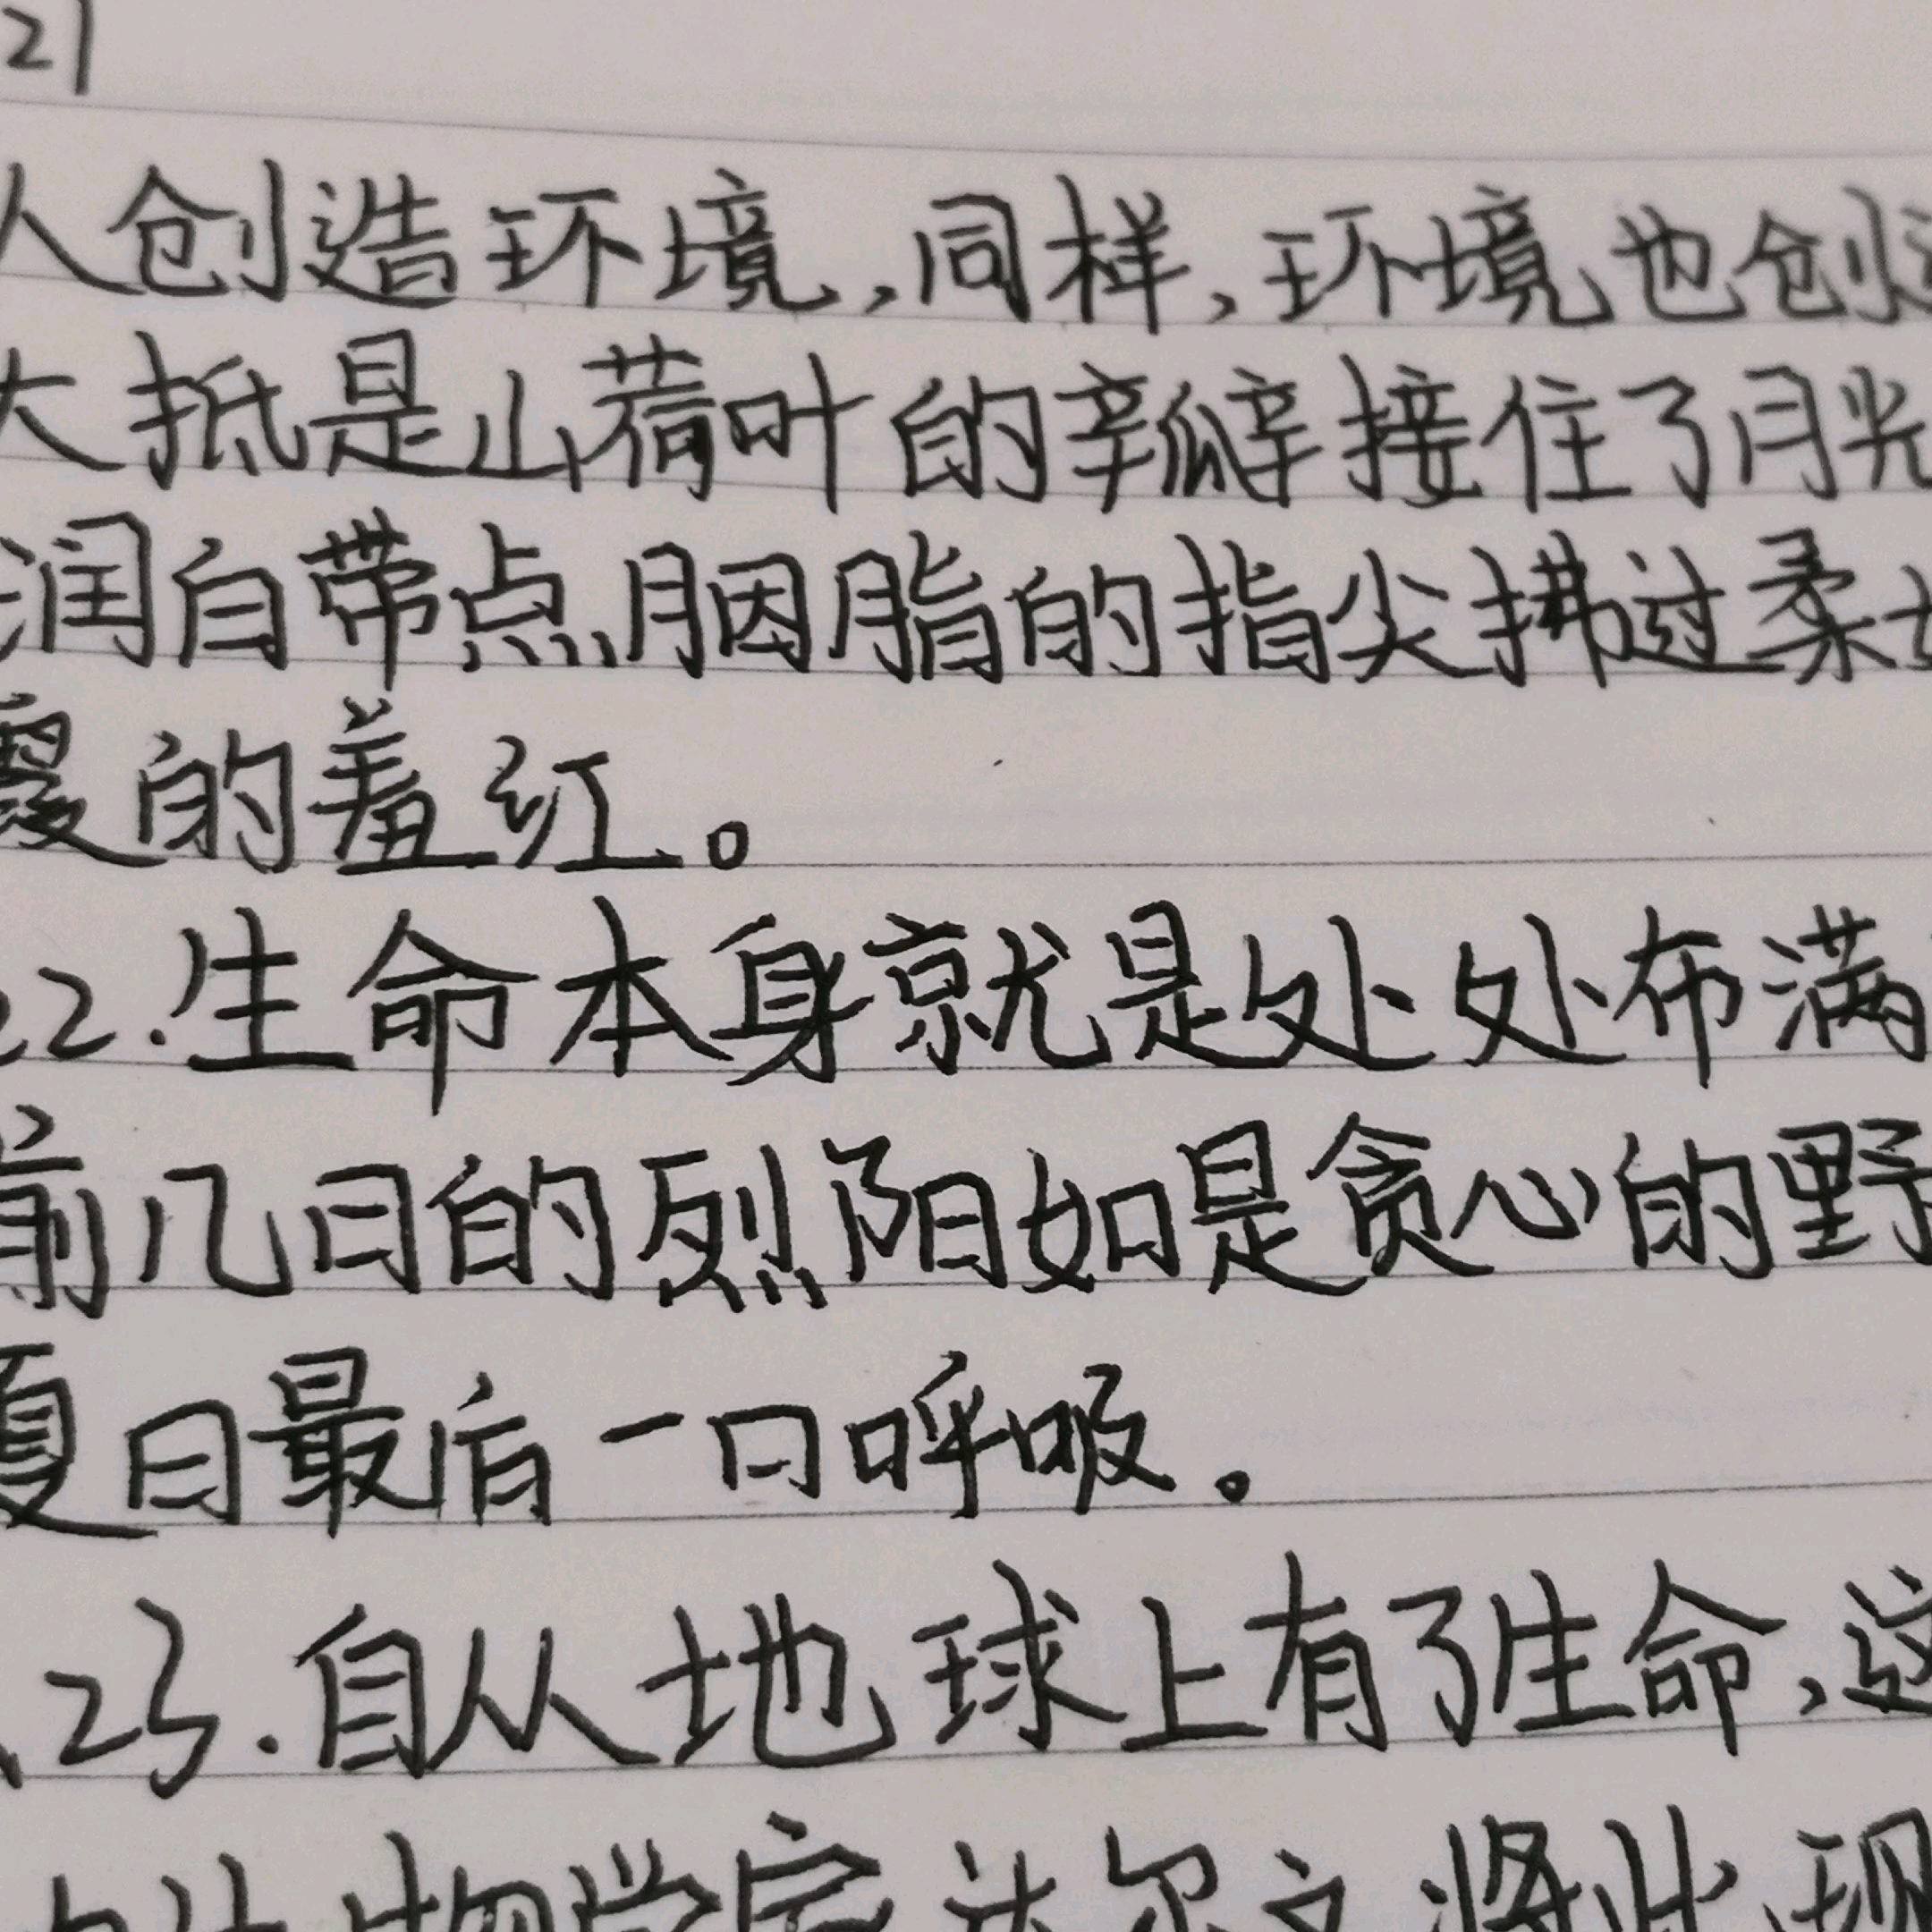 21
人创造环境,同样,环境也创
大抵是山荷叶的瓣接住了月光
润白带点胭脂的指尖拂过柔
的羞红。
22.生命本身就是处处布满
前几日的烈阳如是贪心的野
夏日最后一口呼吸。
23.自从地球上有了生命,这
生物学家达尔文将此现